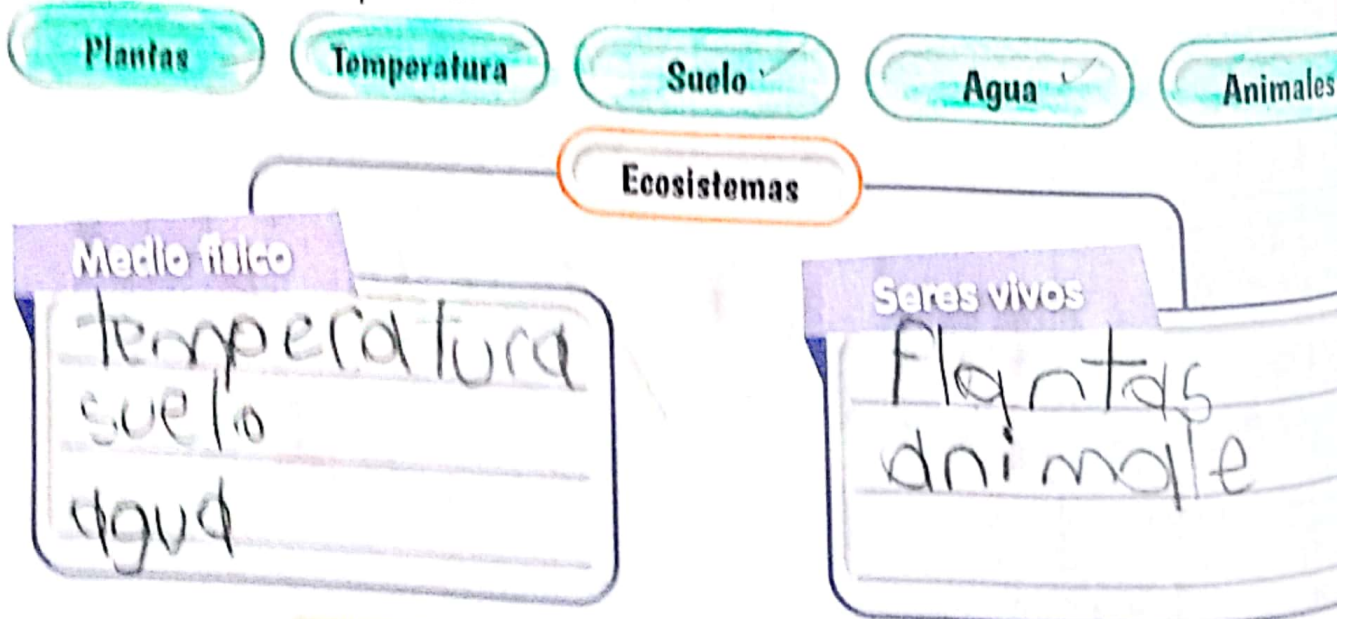 Plantas Temperatura Suelo Agua Animales
Ecosistemas
Medio físico
temperatura
suelo
agua
Seres vivos
Plantas
animale